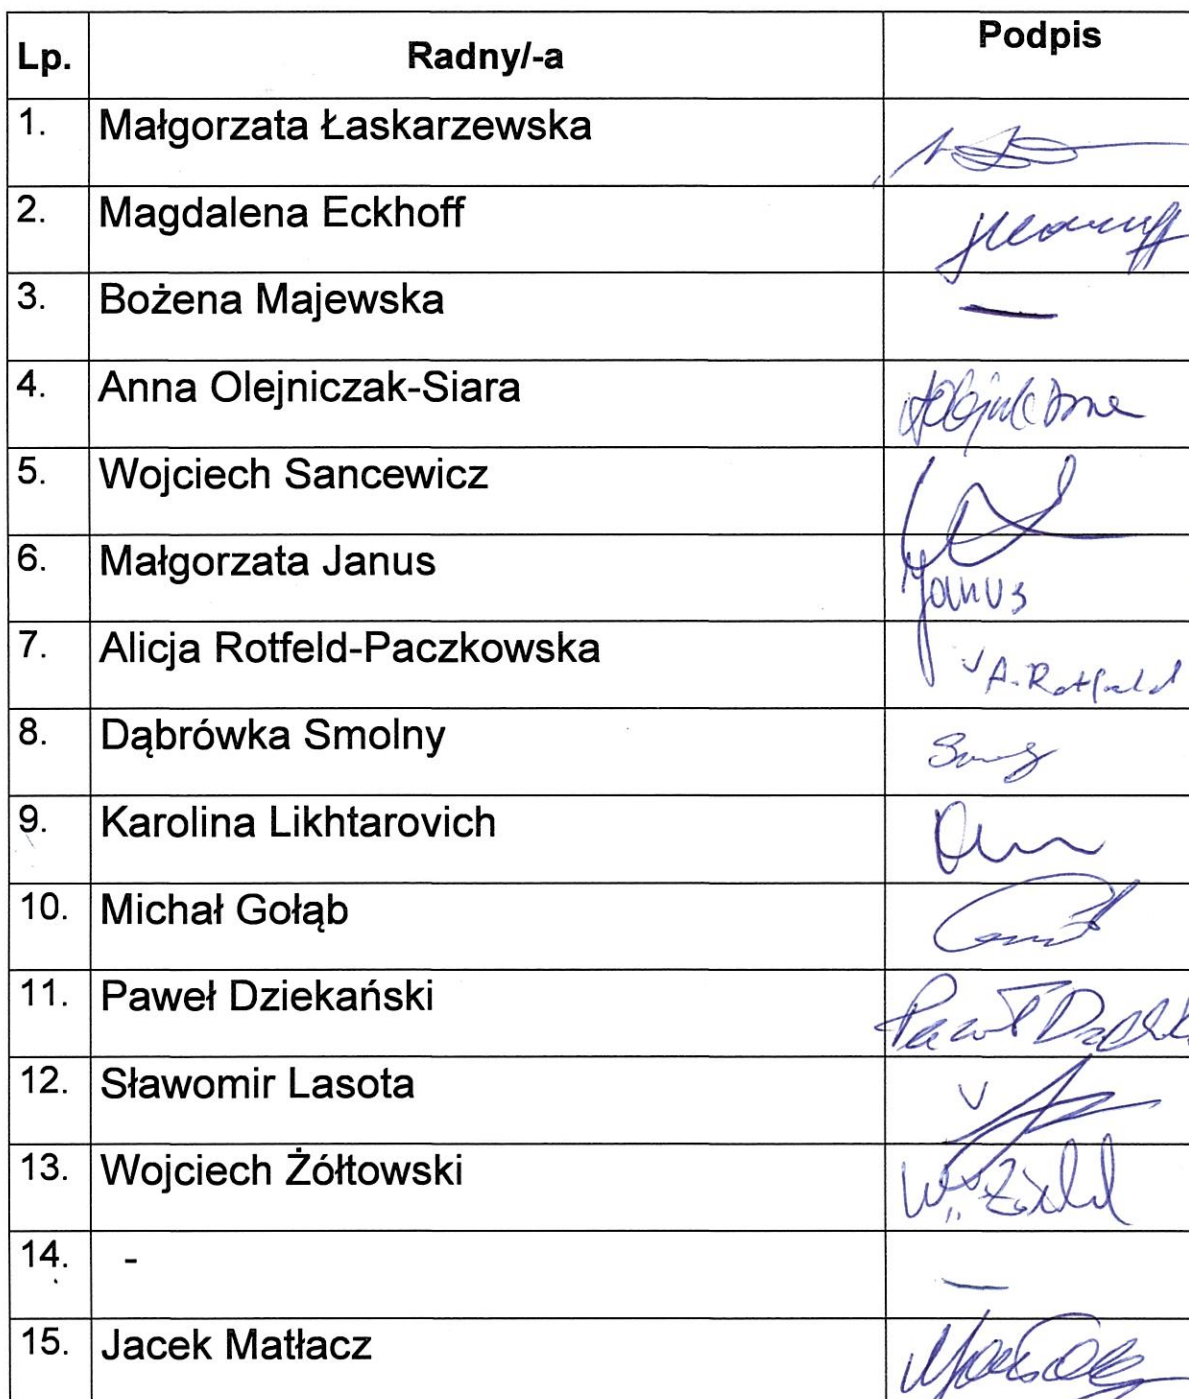 Lp. Radny/-a Podpis
1. Małgorzata Łaskarzewska
2. Magdalena Eckhoff
3. Bożena Majewska —
4. Anna Olejniczak-Siara
5. Wojciech Sancewicz
6. Małgorzata Janus Janus
7. Alicja Rotfeld-Paczkowska A. Rotfeld
8. Dąbrówka Smolny
9. Karolina Likhtarovich
10. Michał Gołąb
11. Paweł Dziekański Paweł
12. Sławomir Lasota
13. Wojciech Żółtowski
14. - —
15. Jacek Matłacz